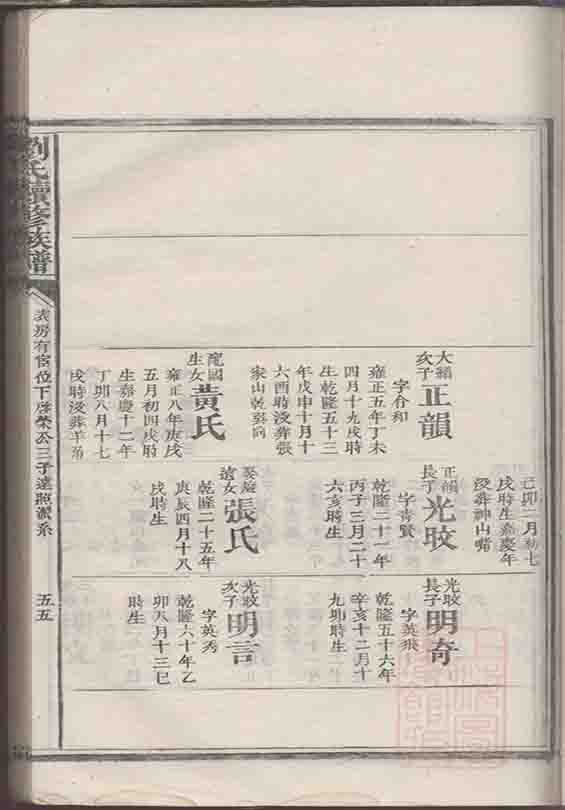 劉氏續修族譜
大縉次子
正韻
字合和
雍正五年丁未
四月十九戌時
生乾隆五十三
年戊申十月十
六酉時歿葬張
家山乾巽向
國
生女
黃氏
雍正八年庚戌
五月初四戌時
生嘉慶十二年
丁卯八月十七
戌時歿葬羊角
己卯二月初七
戌時生嘉慶年
歿葬神山嘴
正韻長子
光旼
字青賢
乾隆二十一年
丙子三月二十
六亥時生
遠女
張氏
乾隆二十五年
庚辰四月十八
戌時生
光旼長子
明奇
字英飛
乾隆五十六年
辛亥十二月十
九卯時生
光旼次子
明言
字英秀
乾隆六十年乙
卯八月十三巳
時生
表房有宦位下啓榮公三子達照派系
五五